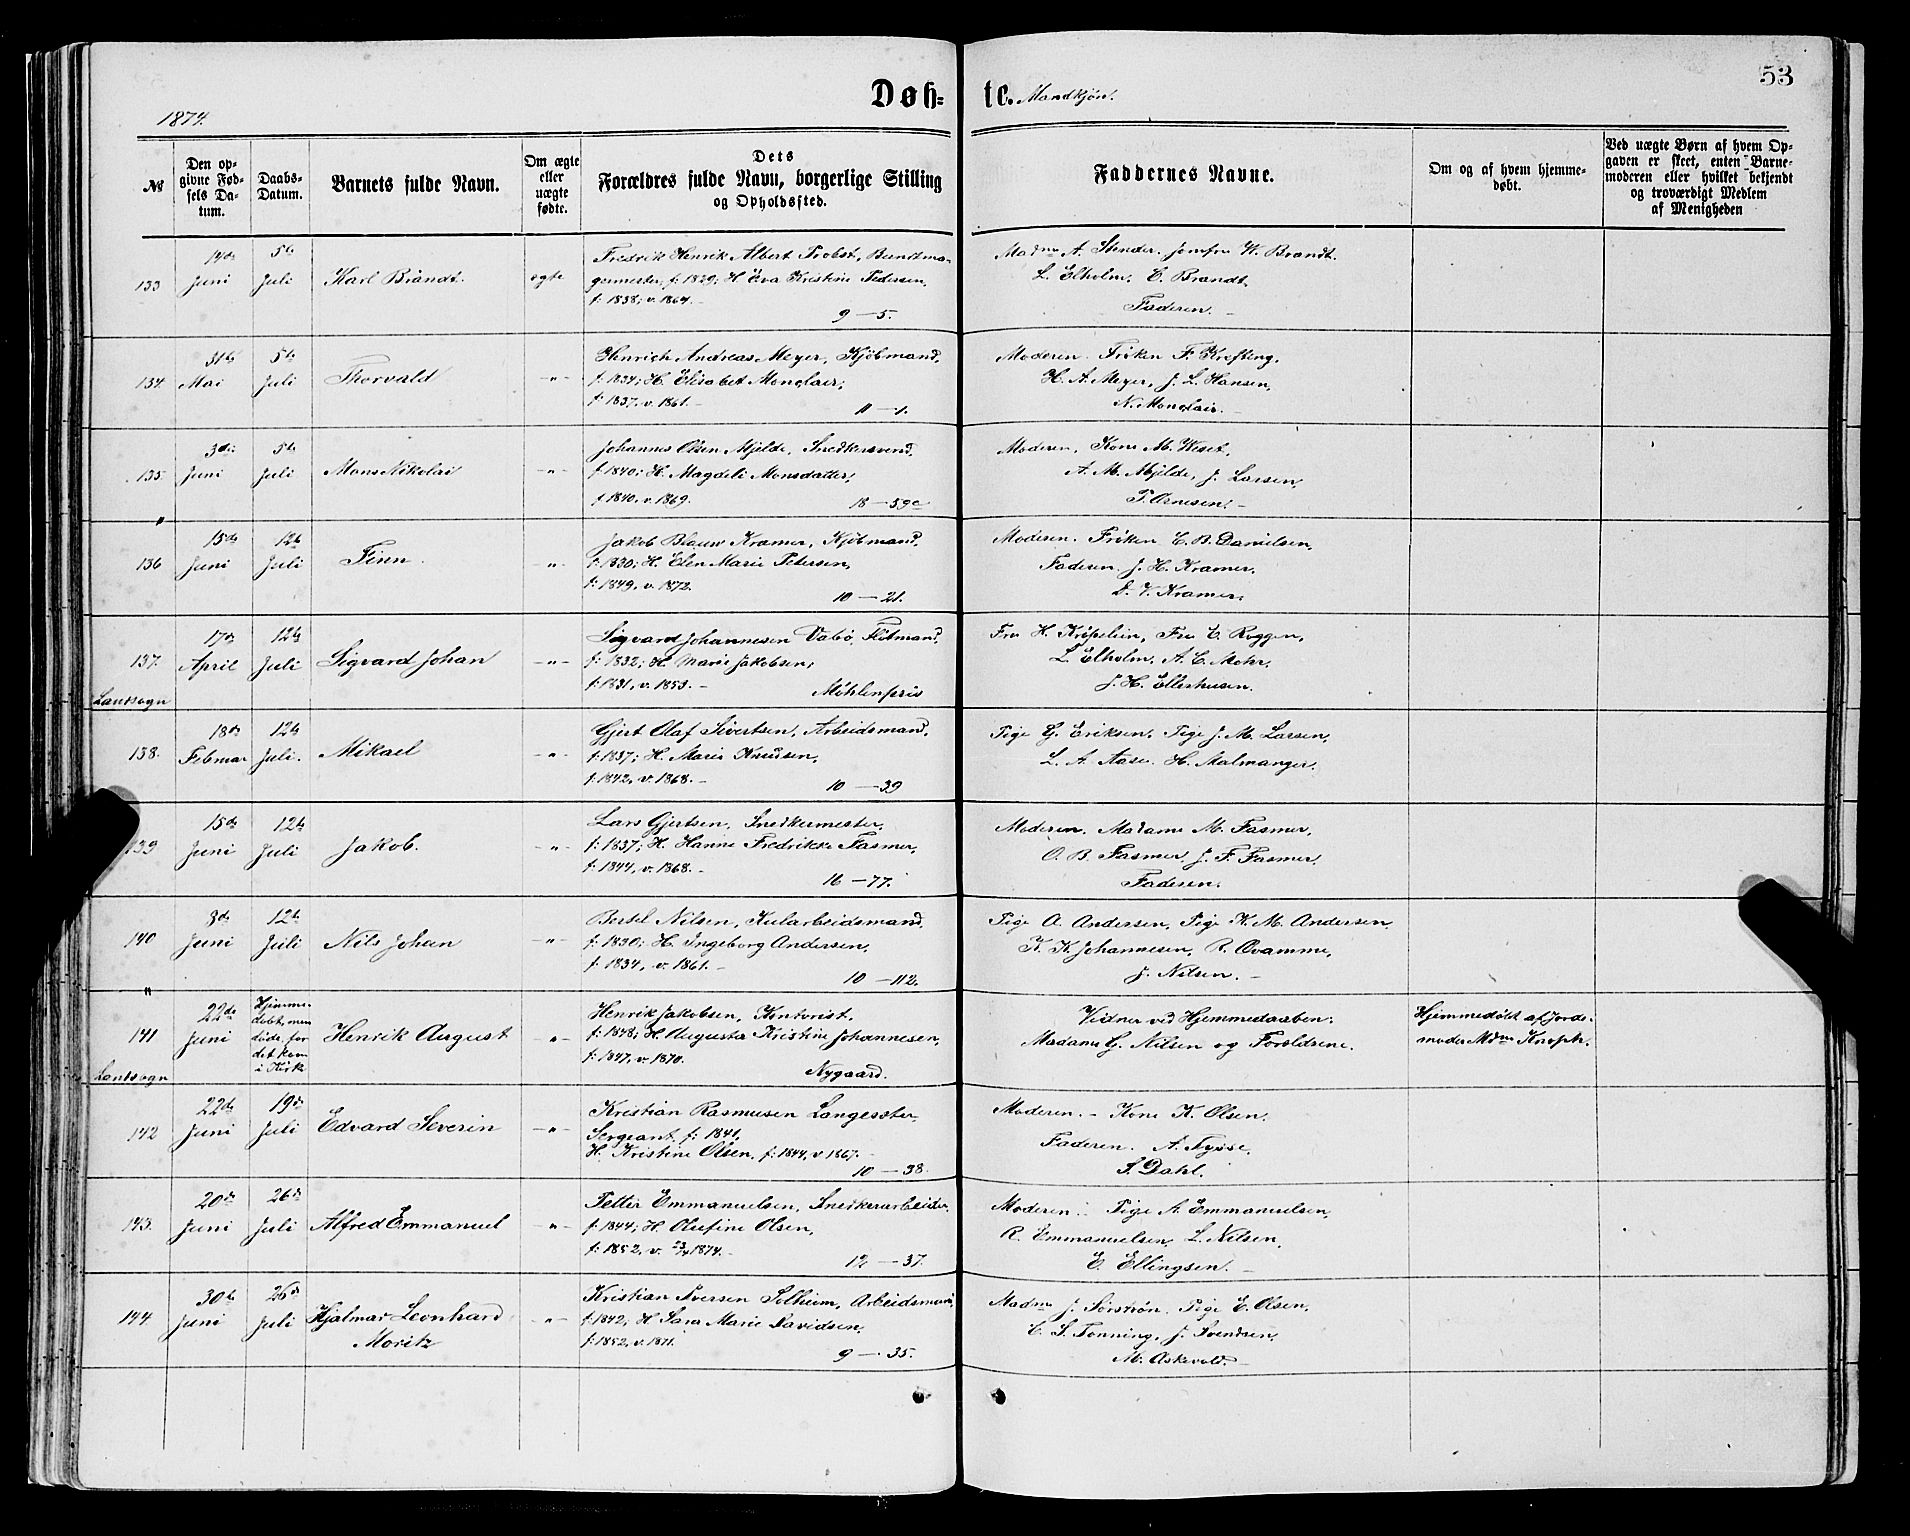 1874.
Døb-
te. Mandkjøn.
53
№
Den op-
givne Fød-
sels Da-
tum.
Daabs-
Datum.
Barnets fulde Navn.
Om ægte
eller
uægte
fødte.
Dets
Forældres fulde Navn, borgerlige Stilling
og Opholdssted.
Faddernes Navne.
Om og af hvem hjemme-
døbt.
Ved uægte Børn af hvem Op-
gaven er skeet, enten Barne-
moderen eller hvilket bekjendt
og troværdigt Medlem
af Menigheden
133
14de Juni
5te Juli
Karl Brandt.
egte
Fredrik Henrik Albert Probst, Bundtma-
germester, f: 1829; H Eva Kristine Pedersen,
f: 1838; v. 1864.
9 — 5.
Madme A. Stender. Jomfru W. Brandt.
L. Elholm. C. Brandt.
Faderen.
134.
31te Mai
5te Juli
Thorvald
—"—
Henrich Andreas Meyer, Kjøbmand,
f: 1834; H. Elisabet Monclair;
f: 1837. v. 1861.
11 — 1.
Moderen. Frøken F. Krefting.
H. A. Meyer, J. L. Hansen,
N. Monclair.
135.
3die Juni
5te Juli
Mons Nikolai
—"—
Johannes Olsen Mjelde, Snedkersvend,
f: 1840; H. Magdeli Monsdatter;
f 1840. v. 1869.
18 — 39c
Moderen, Kone M. Weset,
A. M. Mjelde, J. Larsen,
P. Arnesen.
136
15de Juni
12te Juli
Finn.
—"—
Jakob Blauw Kramer, Kjøbmand,
f: 1830; H. Elen Marie Petersen,
f: 1849, v. 1872.
10 — 21.
Moderen. Frøken C. B. Danielsen,
Faderen. J. H. Kramer.
D. V. Kramer.
137.
Landsogn
17de April
12te Juli
Sigvard Johan
—"—
Sigvard Johannesen Vabø, Flötmand,
f: 1832; H. Marie Jakobsen;
f: 1831, v. 1853.
Möhlenpris
Fru H. Krøpelien, Fru C. Roggen,
L. Elholm, A. C. Mohr.
J. H. Ellerhusen.
138.
18de Februar
12te Juli.
Mikael
—"—
Gjert Olaf Sivertsen, Arbeidsmand.
f: 1837; H. Marie Knudsen,
f: 1842, v. 1868.
10 — 39
Pige G. Eriksen. Pige J. M. Larsen,
L. A. Aase. H. Malmanger.
139
15de Juni
12te Juli
Jakob.
—"—
Lars Gjertsen, Snedkermester,
f: 1837; H. Hanne Fredrikke Fasmer,
f: 1844, v. 1868.
16 — 77.
Moderen. Madame M. Fasmer,
O. B. Fasmer. J. F. Fasmer.
Faderen.
140
8de Juni
12te Juli
Nils Johan
—"—
Bertel Nilsen, Kularbeidsmand
f: 1830; H. Ingeborg Andersen,
f: 1834, v. 1861.
10 — 112.
Pige A. Andersen, Pige K. M. Andersen
K. K. Johannesen, R. Qvamme,
J. Nilsen.
141
Landsogn
22de Juni
Hjemme-
döbt, men
döde, för
det kom
i Kirk
Henrik August
—"—
Henrik Jakobsen, Kontorist.
f: 1848; H. Augusta Kristine Johannesen,
f: 1847, v. 1870.
Nygaard.
Vidner ved Hjemmedaaben:
Madame G. Nilsen og Forældrene.
Hjemmedöbt af Jorde-
moder Mdme Knoph.
142
22de Juni
19de Juli
Edvard Severin
—"—
Kristian Rasmusen Langesæter
Sergeant, f: 1841,
H. Kristine Olsen, f: 1844, v. 1867.
10 — 38.
Moderen. Kone K. Olsen.
Faderen. A. Nyøse.
S. Dahl.
143.
20de Juni
26de Juli
Alfred Emmanuel
—"—
Petter Emmanuelsen, Snedkerarbeider,
f: 1844; H. Olufine Olsen,
f: 1852, v. 23/4 1874.
12 — 37.
Moderen. Pige A. Emmanuelsen,
R. Emmanuelsen, L. Nilsen,
E. Ellingsen.
144
30te Juni
26de Juli
Hjalmar Leonhard
Moritz
—"—
Kristian Iversen Solheim, Arbeidsmand,
f: 1842, H Sara Marie Davidsen,
f: 1852, v. 1871.
9 — 35.
Madme J. Sørstrøn. Pige E. Olsen,
C. S. Tonning, J. Svendsen,
M. Askevold.